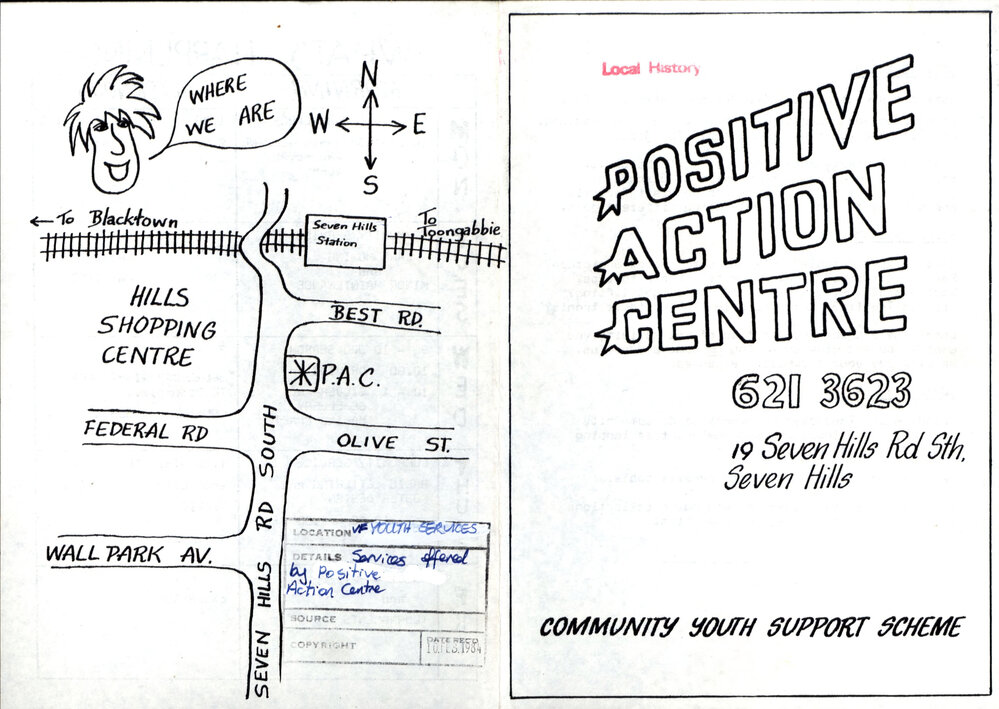 WHERE
WE ARE
N
W E
S
← To Blacktown
Seven Hills
Station
To
Toongabbie
HILLS
SHOPPING
CENTRE
BEST RD.
P.A.C.
FEDERAL RD
OLIVE ST.
WALL PARK AV.
SEVEN HILLS RD SOUTH
LOCATION VF YOUTH SERVICES
DETAILS Services offered
by Positive
Action Centre
SOURCE
COPYRIGHT
DATE REC'D
1984
Local History
POSITIVE
ACTION
CENTRE
621 3623
19 Seven Hills Rd Sth,
Seven Hills
COMMUNITY YOUTH SUPPORT SCHEME